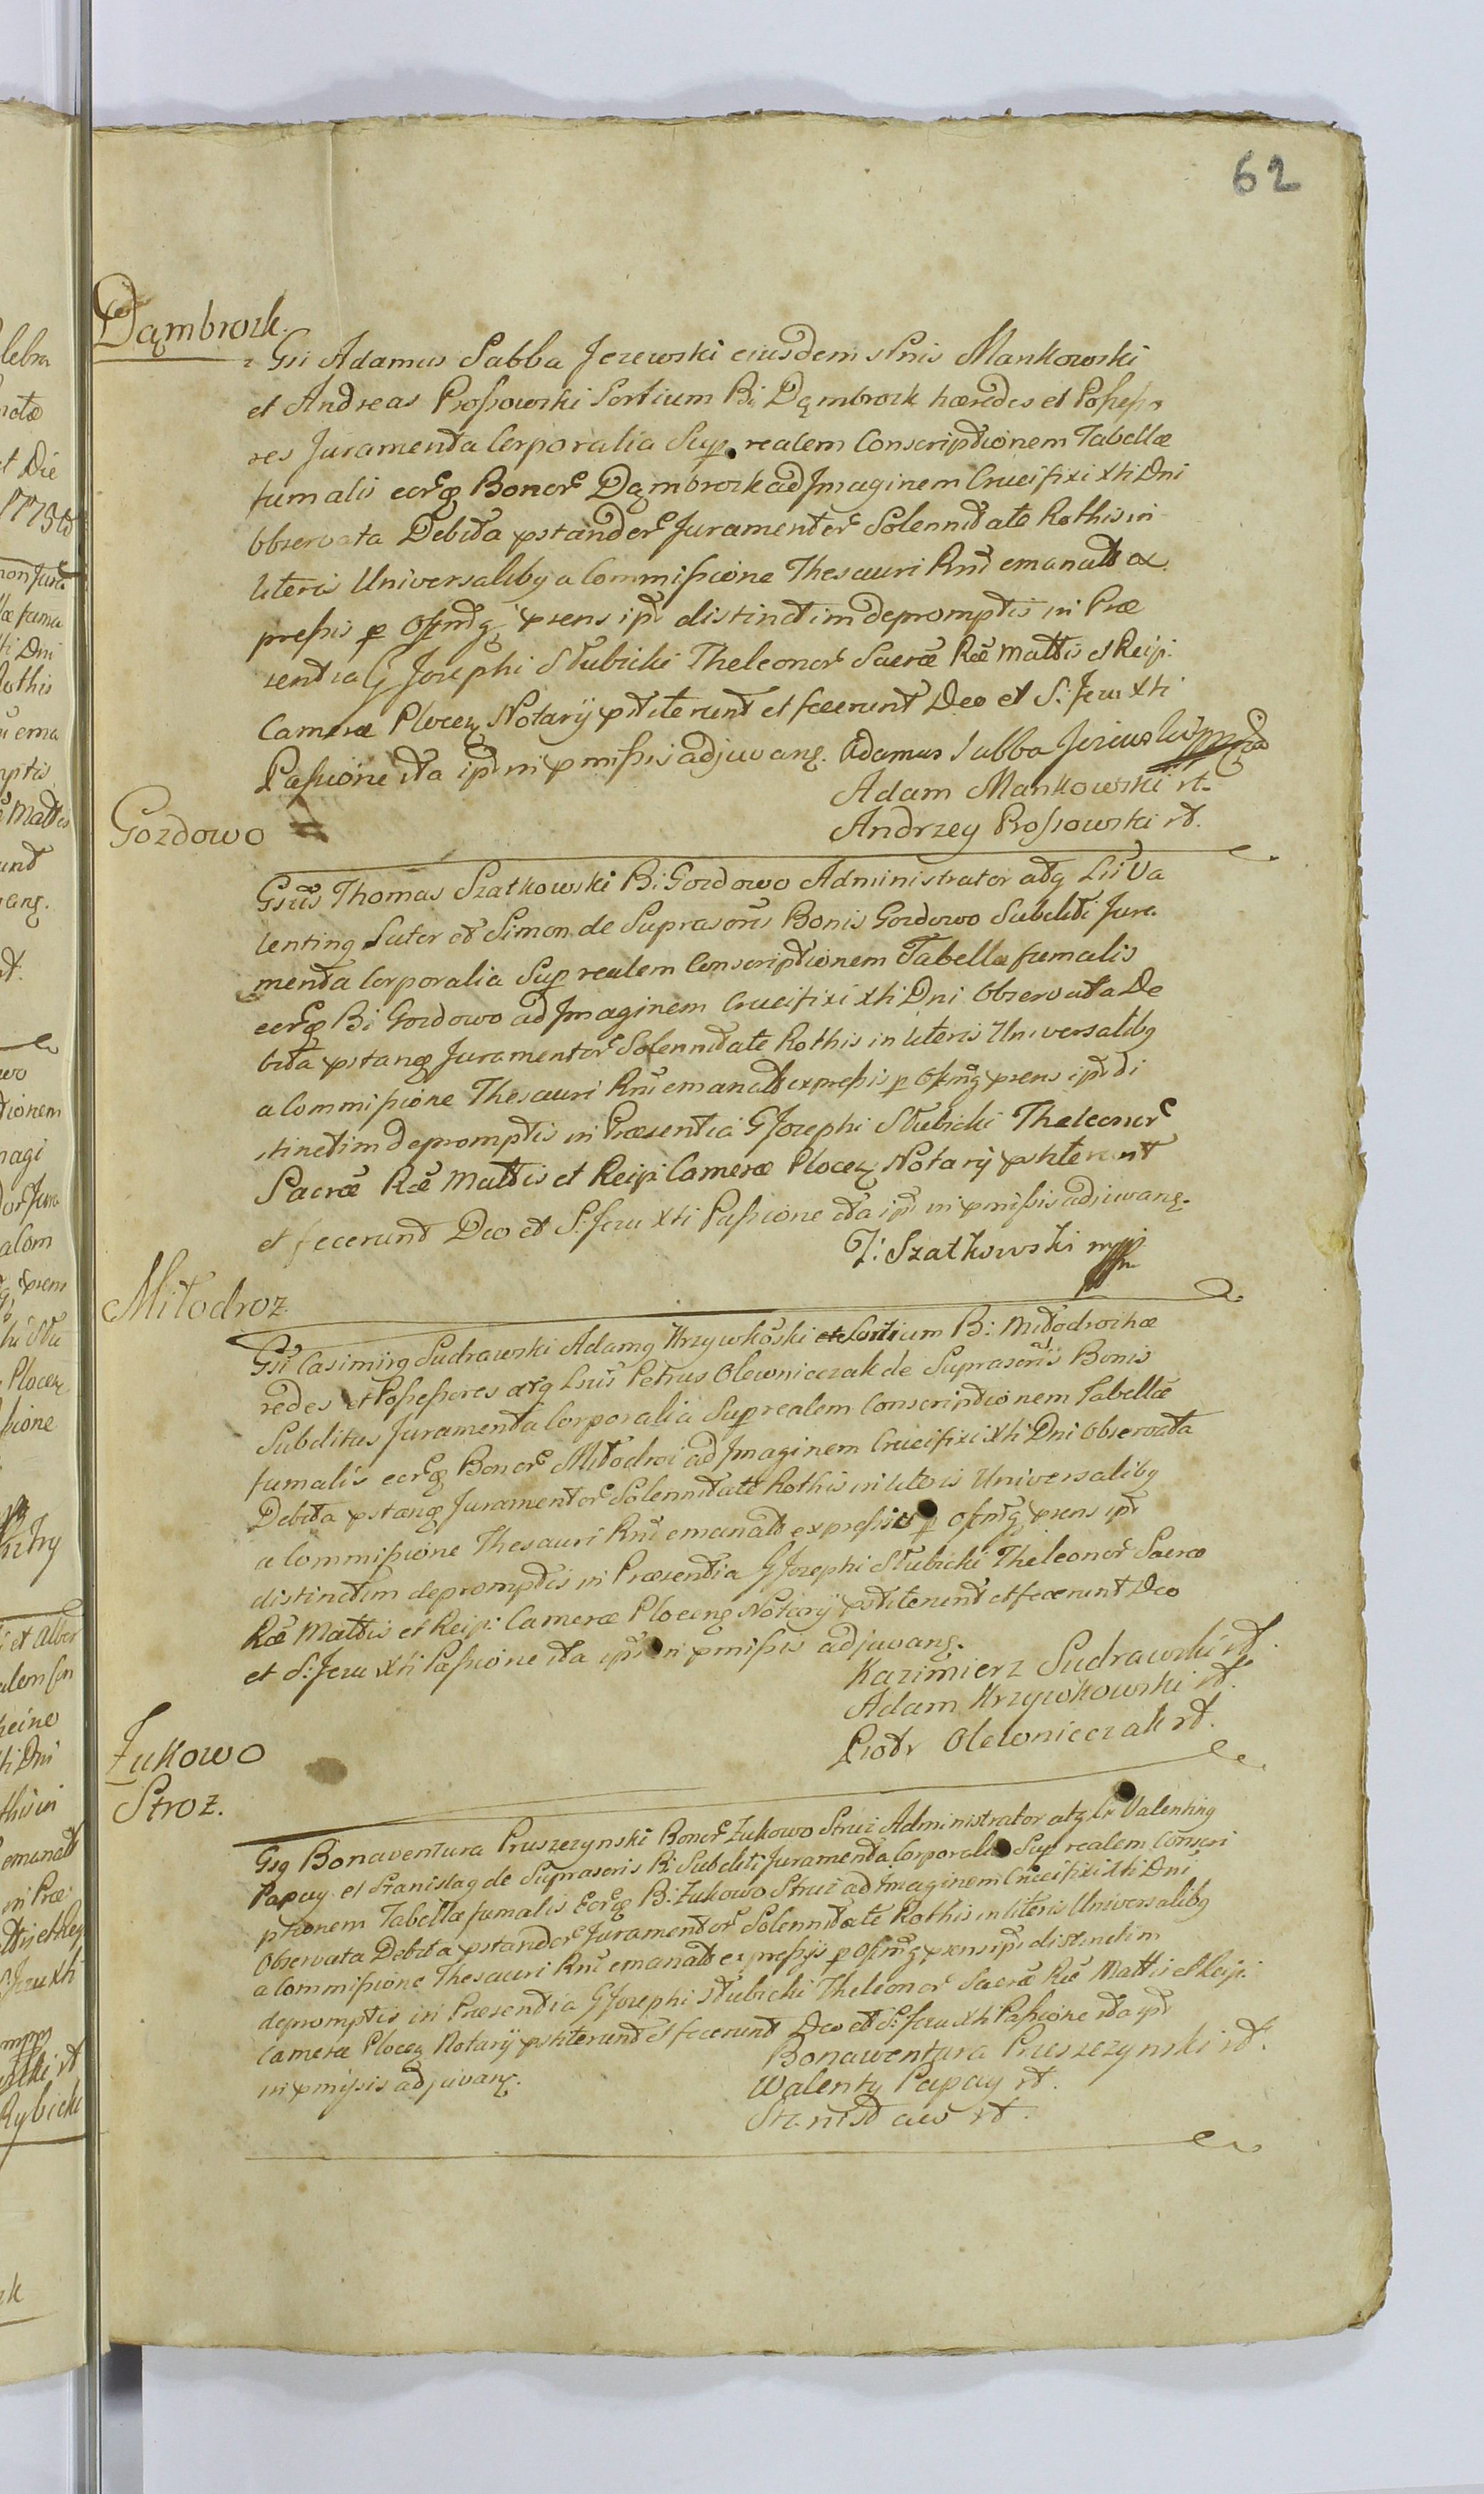 62
Dąmbrozk.
Gsi Adamus Sabba Jezewski eiusdem Nnis Mankowski
et Andreas Prossowski Sortium Bi Dąmbrozk hæredes et Possesso
res Juramenta Corporalia Sup realem Conscriptionem Tabellæ
fumalis eorq Bonor Dąmbrozk ad Imaginem Crucifixi Xti Dni
Observata Debita pstandor Juramentor Solennitate Rothis in
literis Universalibq a Commissione Thesauri Rni emanatt ex
pressis p Offmq psens ipi distinctim depromptis in Præ
sentia G Josephi Słubicki Theleonor Sacræ Ræ Mattis et Reip:
Cameræ Plocen Notarij pstiterunt et fecerunt Deo et S: Jesu Xti
Passione ita ipi in pmissis adjuvang. Adamus Sabba Jezewski mpp
Adam Mankowski rt.
Andrzey Prossowski rt.
Gozdowo
Gsus Thomas Szatkowski Bi Gozdowo Administrator atq Lii Va
lentinq Suter et Simon de Suprascris Bonis Gozdowo Subditi Jura
menta Corporalia Sup realem Conscriptionem Tabellæ fumalis
eorq Bi Gozdowo ad Imaginem Crucifixi Xti Dni Observata De
bita pstanq Juramentor Solennitate Rothis in literis Universalibq
a Commissione Thesauri Rni emanatt expressis p Offmq psens ipi di
stinctim depromptis in Præsentia G Josephi Słubicki Theleonor
Sacræ Ræ Mattis et Reip: Cameræ Plocen Notarij pstiterunt
et fecerunt Deo et S: Jesu Xti Passione ita ipi in pmissis adjuvang.
T: Szatkowski mpp
Miłodroz.
Gsi Casimirq Sudrawski Adamq Krzywkoski et Sortium B: Miłodroz hæ
redes et Possessores atq Lsus Petrus Olewnieczak de Suprascris Bonis
Subditus Juramenta Corporalia Sup realem Conscriptionem Tabellæ
fumalis eorq Bonor Miłodroi ad Imaginem Crucifixi Xti Dni Observata
Debita pstanq Juramentor Solennitate Rothis in literis Universalibq
a Commissione Thesauri Rni emanatt expressis p Offmq psens ipi
distinctim depromptis in Præsentia G Josephi Słubicki Theleonor Sacræ
Ræ Mattis et Reip: Cameræ Plocenq Notarij pstiterunt et fecerunt Deo
et S: Jesu Xti Passione ita ipi in pmissis adjuvang.
Kazimierz Sudrawski rt.
Adam Krzywkowski rt.
Piotr Olewnieczak rt.
Żukowo
Stroz.
Gsq Bonaventura Pruszczynski Bonor Żukowo Struz Administrator atq Lr Valentinq
Papay et Stanislaq de Suprascris Bi Subditi Juramenta Corporalia Sup realem Conscri
ptionem Tabellæ fumalis Eorq B: Żukowo Struz ad Imaginem Crucifixi Xti Dni
Observata Debita pstandor Juramentor Solennitate Rothis in literis Universalibq
a Commissione Thesauri Rni emanatt expressijs p Offmq psens ipi distinctim
depromptis in Præsentia G Josephi Słubicki Theleonor Sacræ Ræ Mattis et Reip:
Cameræ Plocen Notarij pstiterunt et fecerunt Deo et S: Jesu Xti Passione ita ipi
in pmissis adjuvang.
Bonawentura Pruszczynski rt.
Walenty Papay rt.
Stanisław rt.